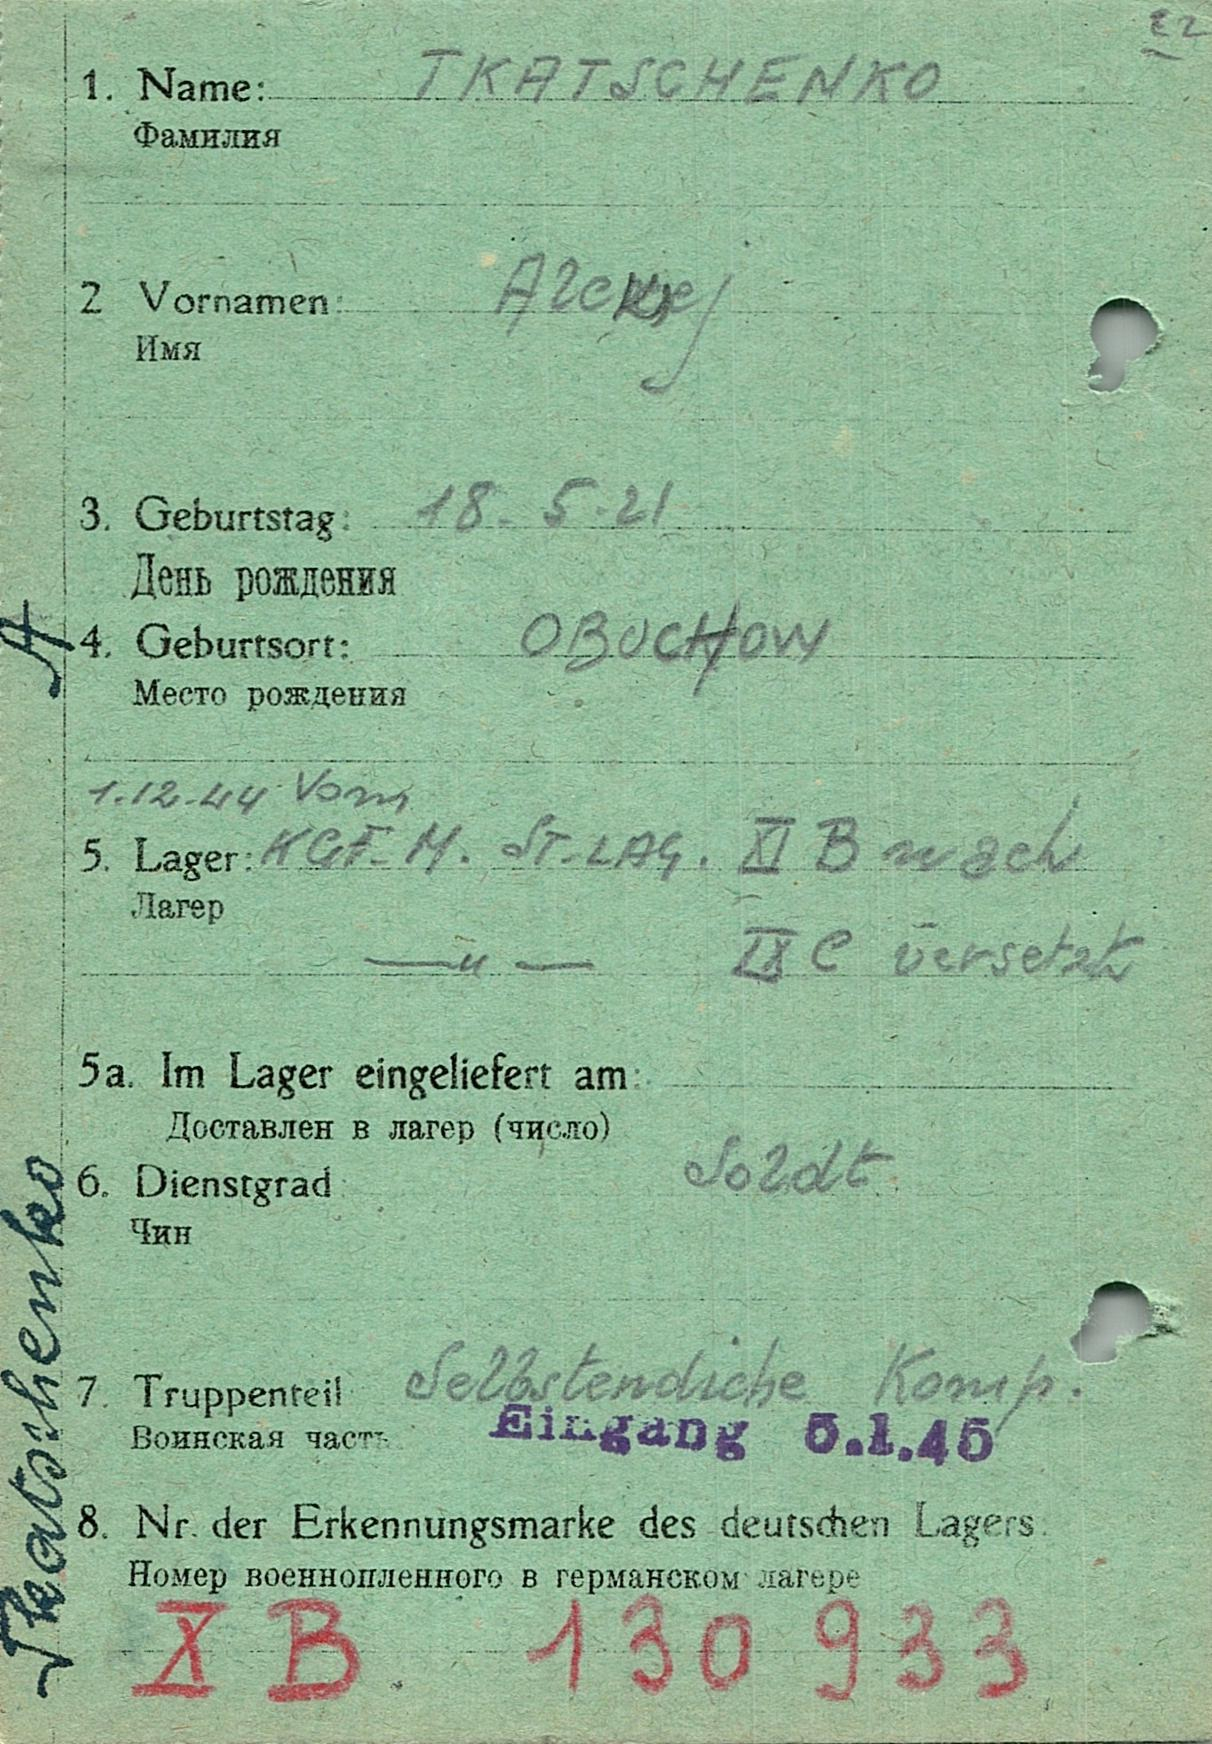 1. Name: TKATSCHENKO
Фамилия
2 Vornamen:
Имя
3. Geburtstag: 18. 5. 21
День рождения
4. Geburtsort: OBUCHOW
Место рождения
1.12.44 Vom
5. Lager: KGF-M. ST-LAG. XI B nach
Лагер
—"— IX C versetzt
5a. Im Lager eingeliefert am:
Доставлен в лагер (число)
6. Dienstgrad Soldt
Чин
7. Truppenteil Selbstendiche Komp.
Воинская часть
Eingang 5.1.45
8. Nr. der Erkennungsmarke des deutschen Lagers.
Номер военнопленного в германском лагере
X B 130933
Tkatschenko A